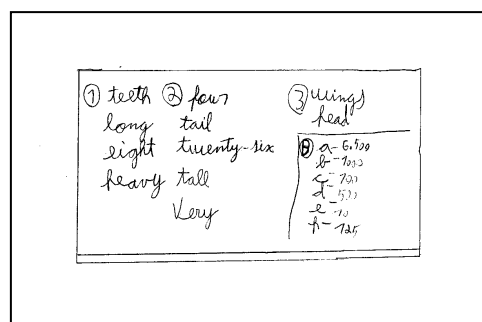 ① teeth
long
eight
heavy
② four
tail
twenty-six
tall
Very
③ wings
head
B a- 6.500
b- 1000
c- 100
d- 500
e- 10
f- 125